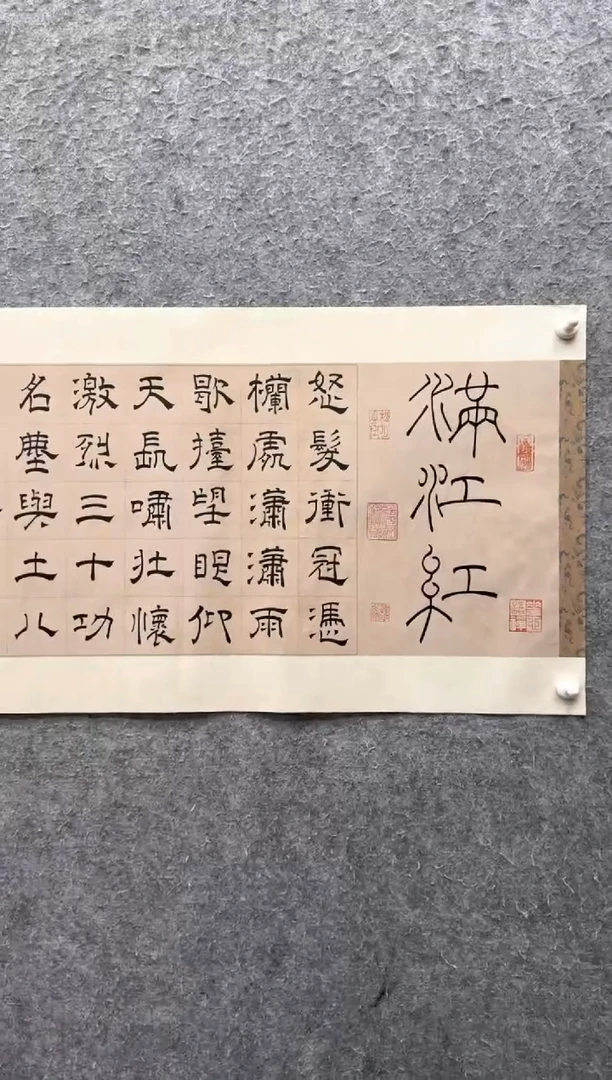 滿江紅
怒髮衝冠憑
欄處瀟瀟雨
歇擡望眼仰
天長嘯壯懷
激烈三十功
名塵與土八